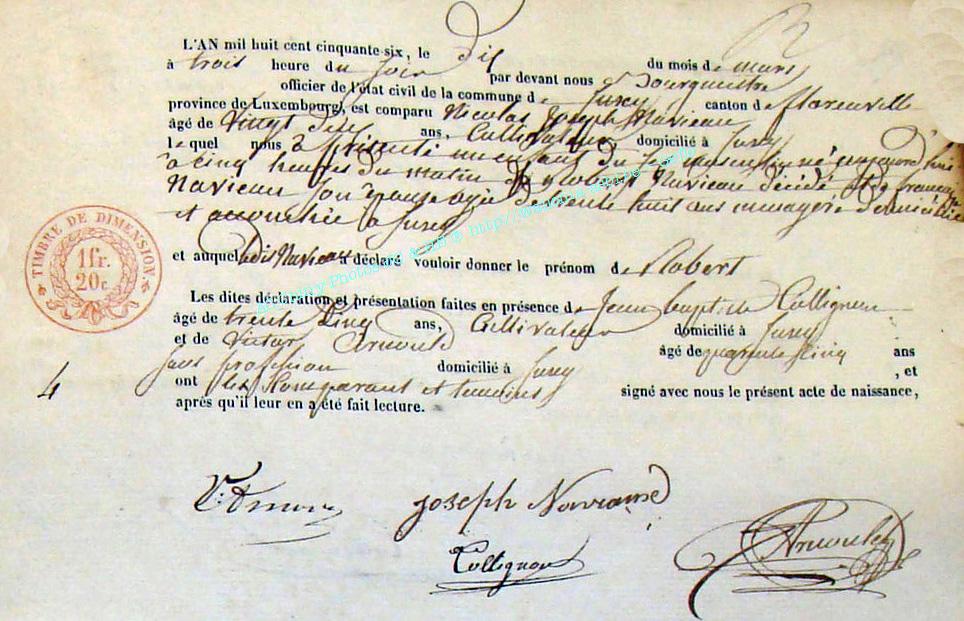 L'AN mil huit cent cinquante-six, le dix
du mois de mars
à trois heure du soir par devant nous Bourgmestre
officier de l'état civil de la commune de Jusey canton de florenville
province de Luxembourg, est comparu Nicolas Joseph Navieau
âgé de Vingt ans, Cultivateur domicilié à Jusey
lequel nous a présenté un enfant du né aujourd'hui
à cinq heures du matin de Robert Navieau décédé et de
Navieau son épouse agée de trente huit ans menagère domiciliée
et accouchée à Jusey
et auquel ledit Navieau a déclaré vouloir donner le prénom de Robert
Les dites déclaration et présentation faites en présence de Jean Bapt.te Collignon
âgé de trente cinq ans, Cultivateur domicilié à Jusey
et de Victor Arnould âgé de quarante cinq ans
sans profession domicilié à Jusey , et
ont les Comparant et temoins signé avec nous le présent acte de naissance,
après qu'il leur en a été fait lecture.
TIMBRE DE DIMENSION.
1 fr.
20 c.
4
joseph
Collignon
Arnould